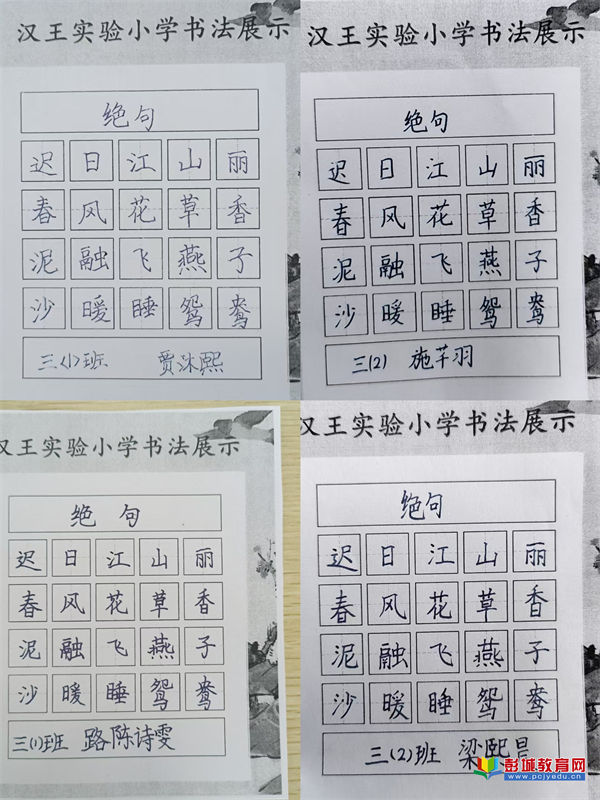 汉王实验小学书法展示
绝句
迟日江山丽
春风花草香
泥融飞燕子
沙暖睡鸳鸯
三(1)班 贾沐熙
汉王实验小学书法展示
绝句
迟日江山丽
春风花草香
泥融飞燕子
沙暖睡鸳鸯
三(2) 施芊羽
汉王实验小学书法展示
绝句
迟日江山丽
春风花草香
泥融飞燕子
沙暖睡鸳鸯
三(1)班 路陈诗雯
汉王实验小学书法展示
绝句
迟日江山丽
春风花草香
泥融飞燕子
沙暖睡鸳鸯
三(2)班 梁熙
彭城教育网
www.pcjyedu.cn